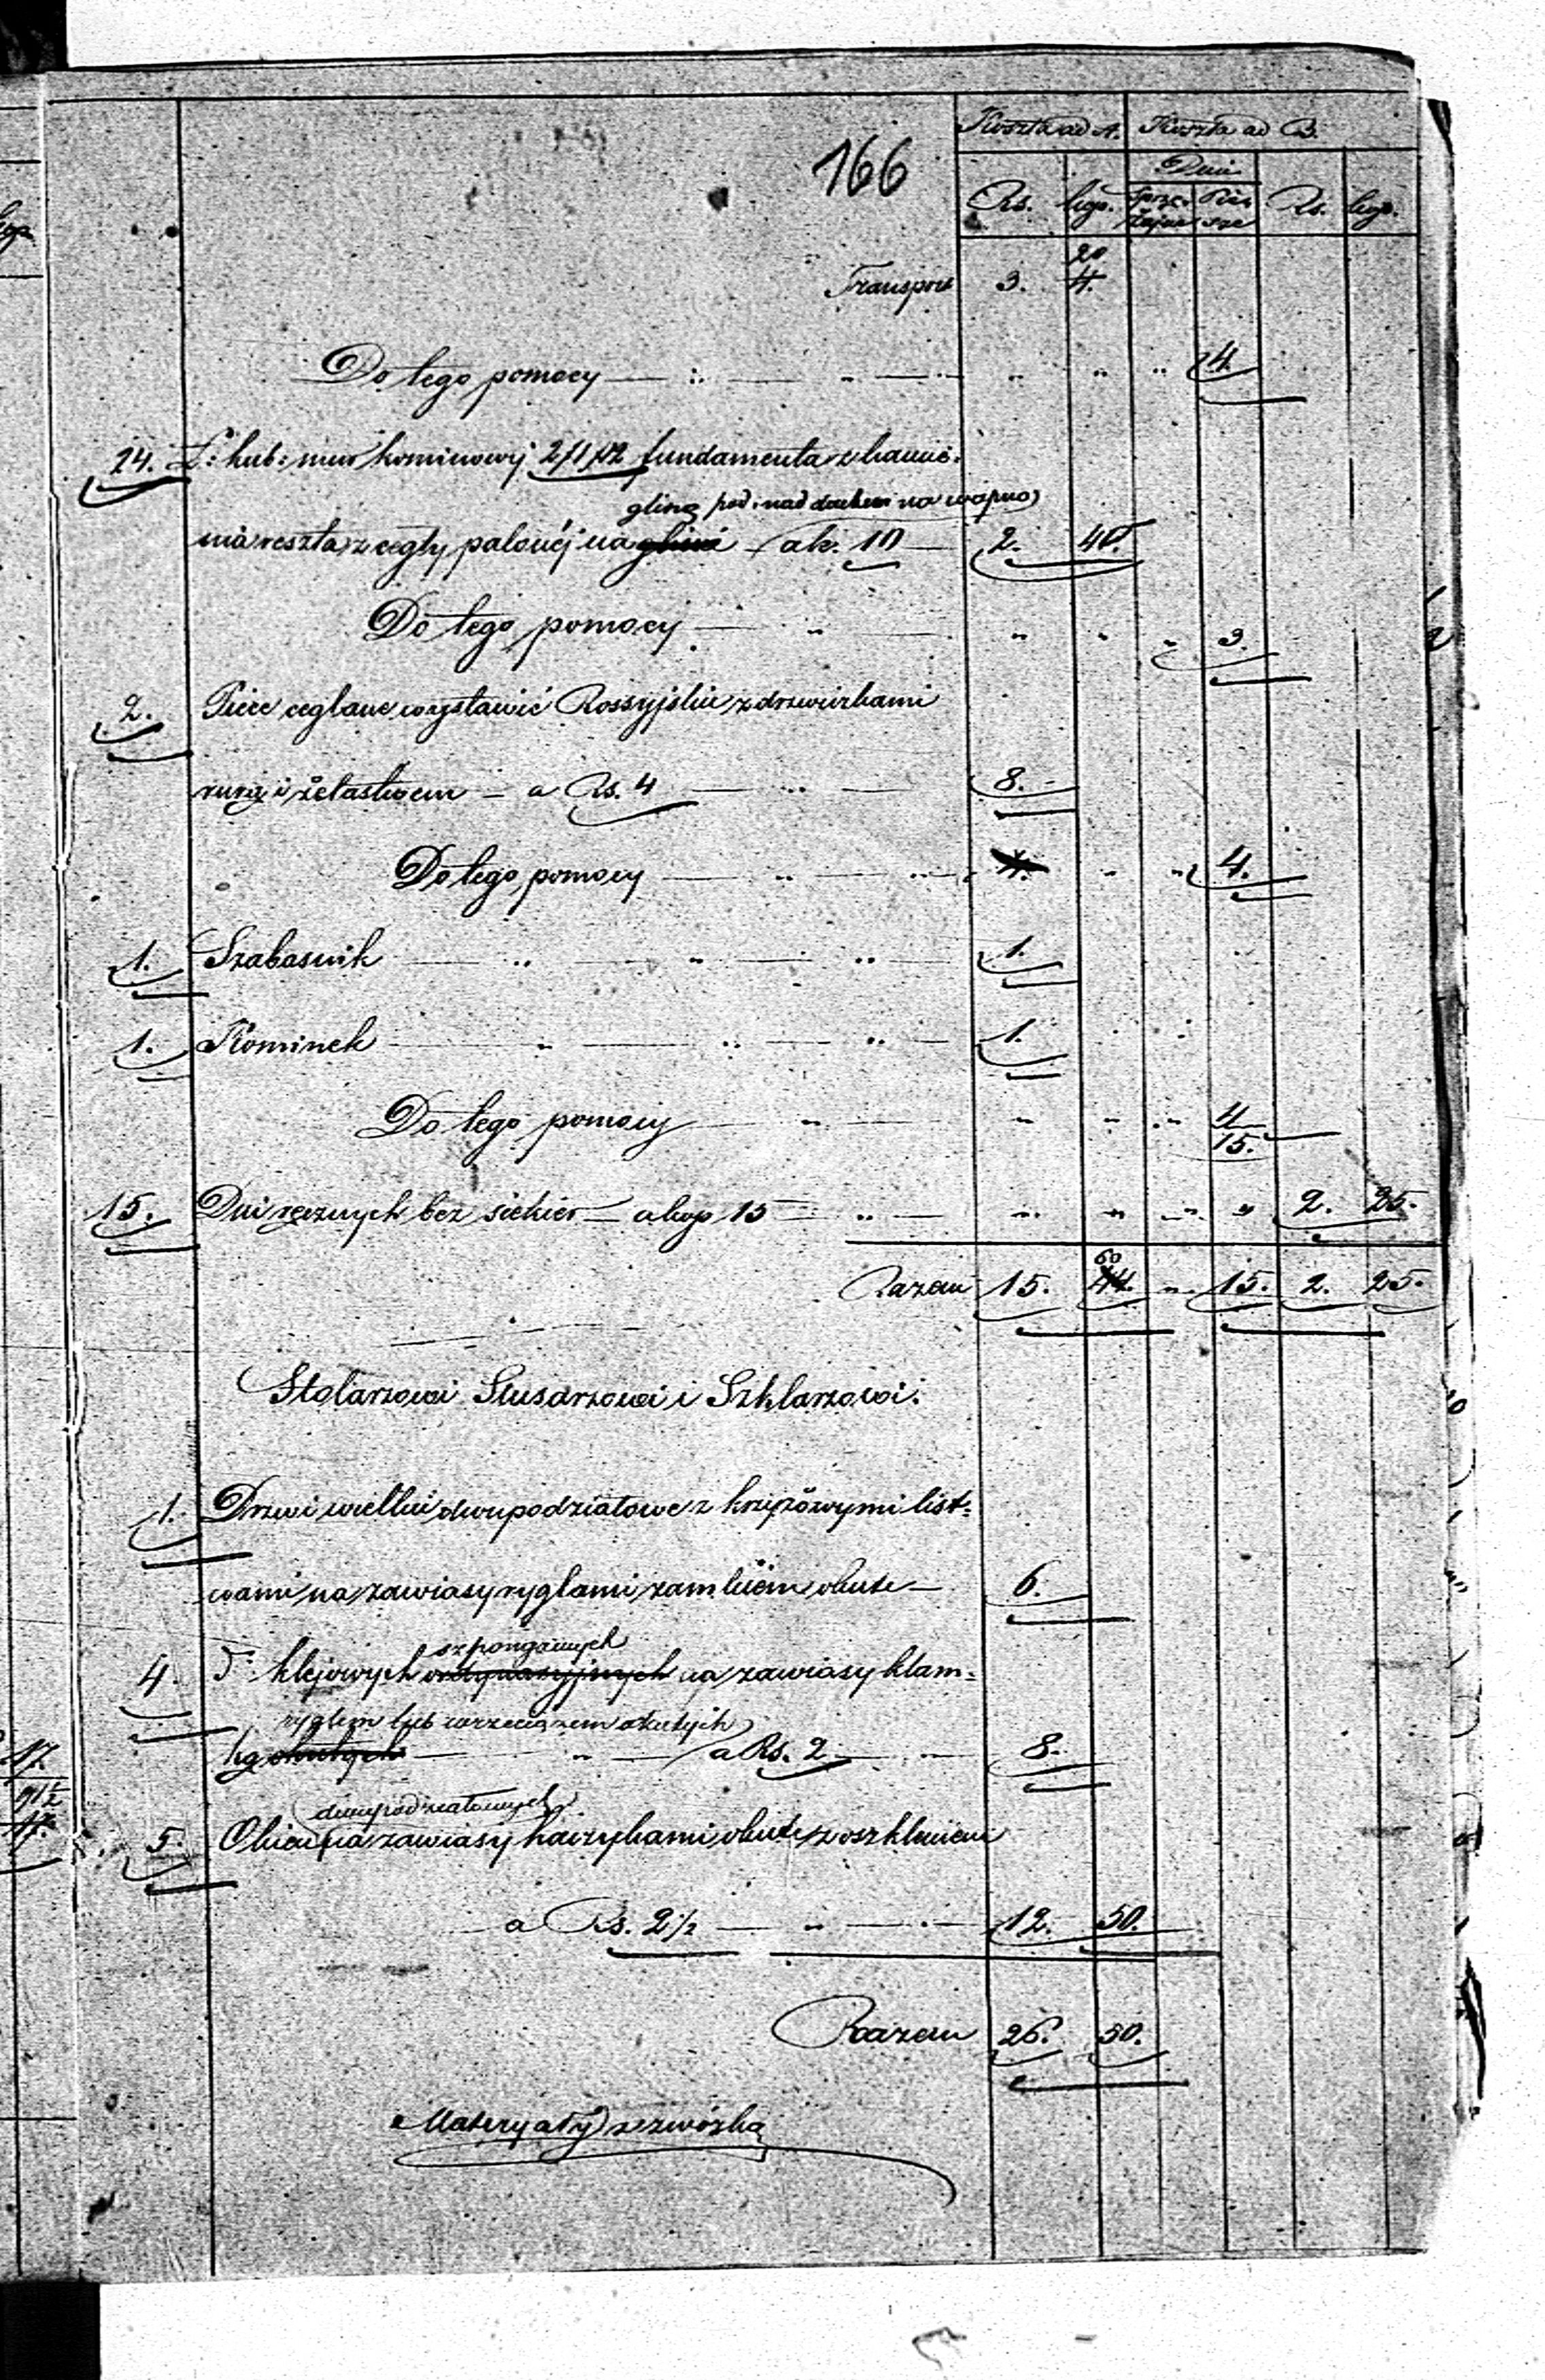 166
Koszta ad A. Koszta ad B.
Dni
Rs. kop. Sprzę- Pie- Rs. kop.
żajne sze
20
Transport 3. 4.
Do tego pomocy 4.
24. Ł: kub: mur kominowy 2/1/12 fundamenta z kamie-
gliną pod, nad dachem na wapno
nia reszta z cegły palonéj na glinie a k. 10 2. 40.
Do tego pomocy 3.
2. Piece ceglane wystawić Rossyjskie z drzwiczkami
rurą i żelastwem – a Rs. 4 8.
Do tego pomocy 4.
1. Szabaśnik 1.
1. Kominek 1.
Do tego pomocy 4
15.
15. Dni ręcznych bez siekier – a kop 15 2. 25.
60
Razem 15. 44. 15. 2. 25.
Stolarzowi Slusarzowi i Szklarzowi.
1. Drzwi wielkie dwupodziałowe z krepowymi list-
wami na zawiasy ryglami zamkiem okute – 6.
szpongowych
4. Dº klejowych ordynaryjnych na zawiasy klam-
ryglem lub wrzeciązem okutych
ką okutych a Rs. 2 8.
dwupodziałowych
5. Okien na zawiasy haczykami okute z oszkleniem
a Rs. 2 1/2 12. 50.
Razem 26. 50.
Materyały z zwózką
17.
91/2
17.